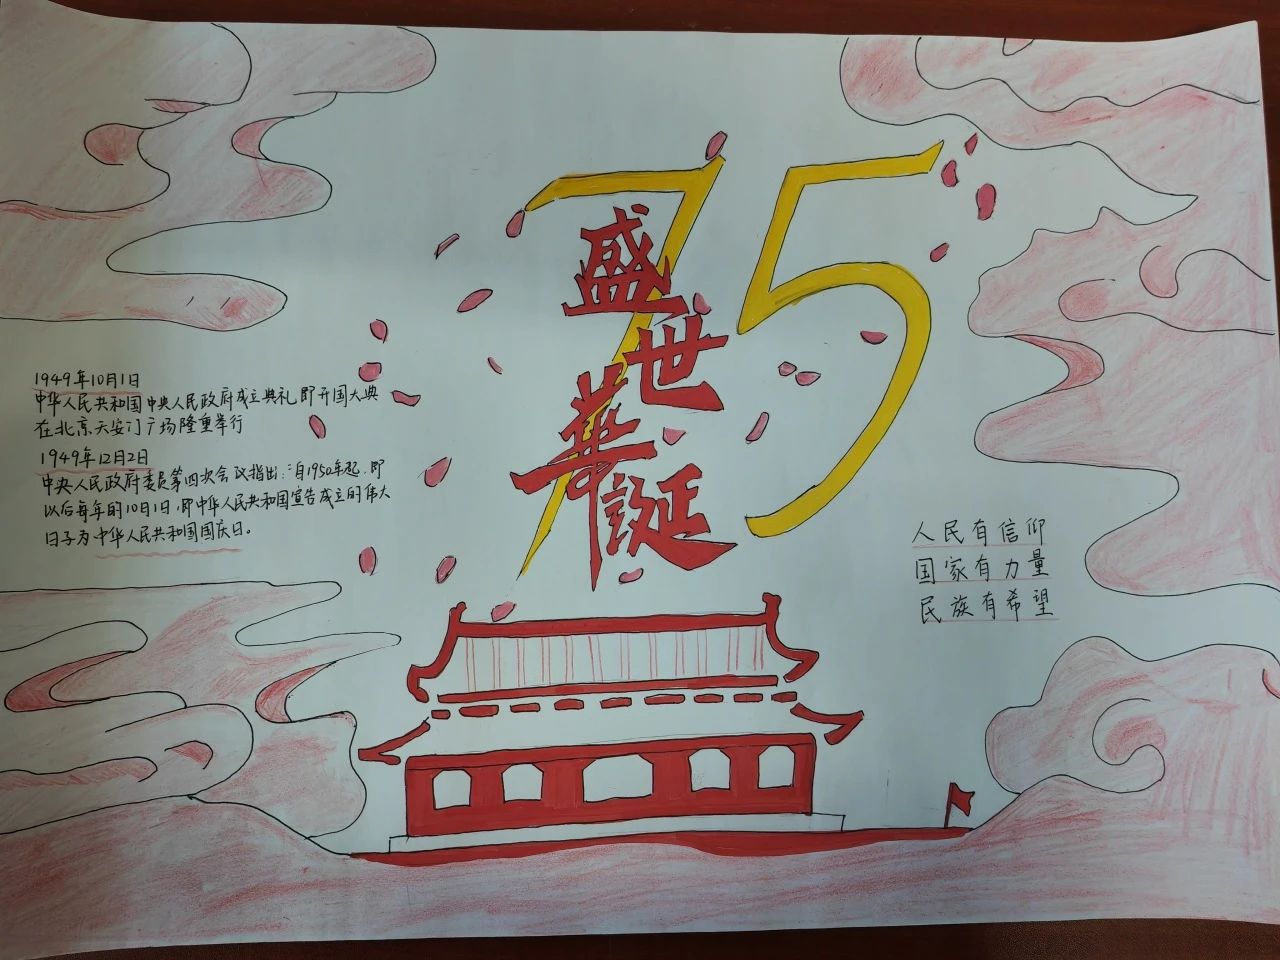 75
盛世華誕
1949年10月1日
中华人民共和国中央人民政府成立典礼即开国大典
在北京天安门广场隆重举行
1949年12月2日
中央人民政府委员第四次会议指出:“自1950年起,即
以后每年的10月1日,即中华人民共和国宣告成立的伟大
日子为中华人民共和国国庆日。
人民有信仰
国家有力量
民族有希望